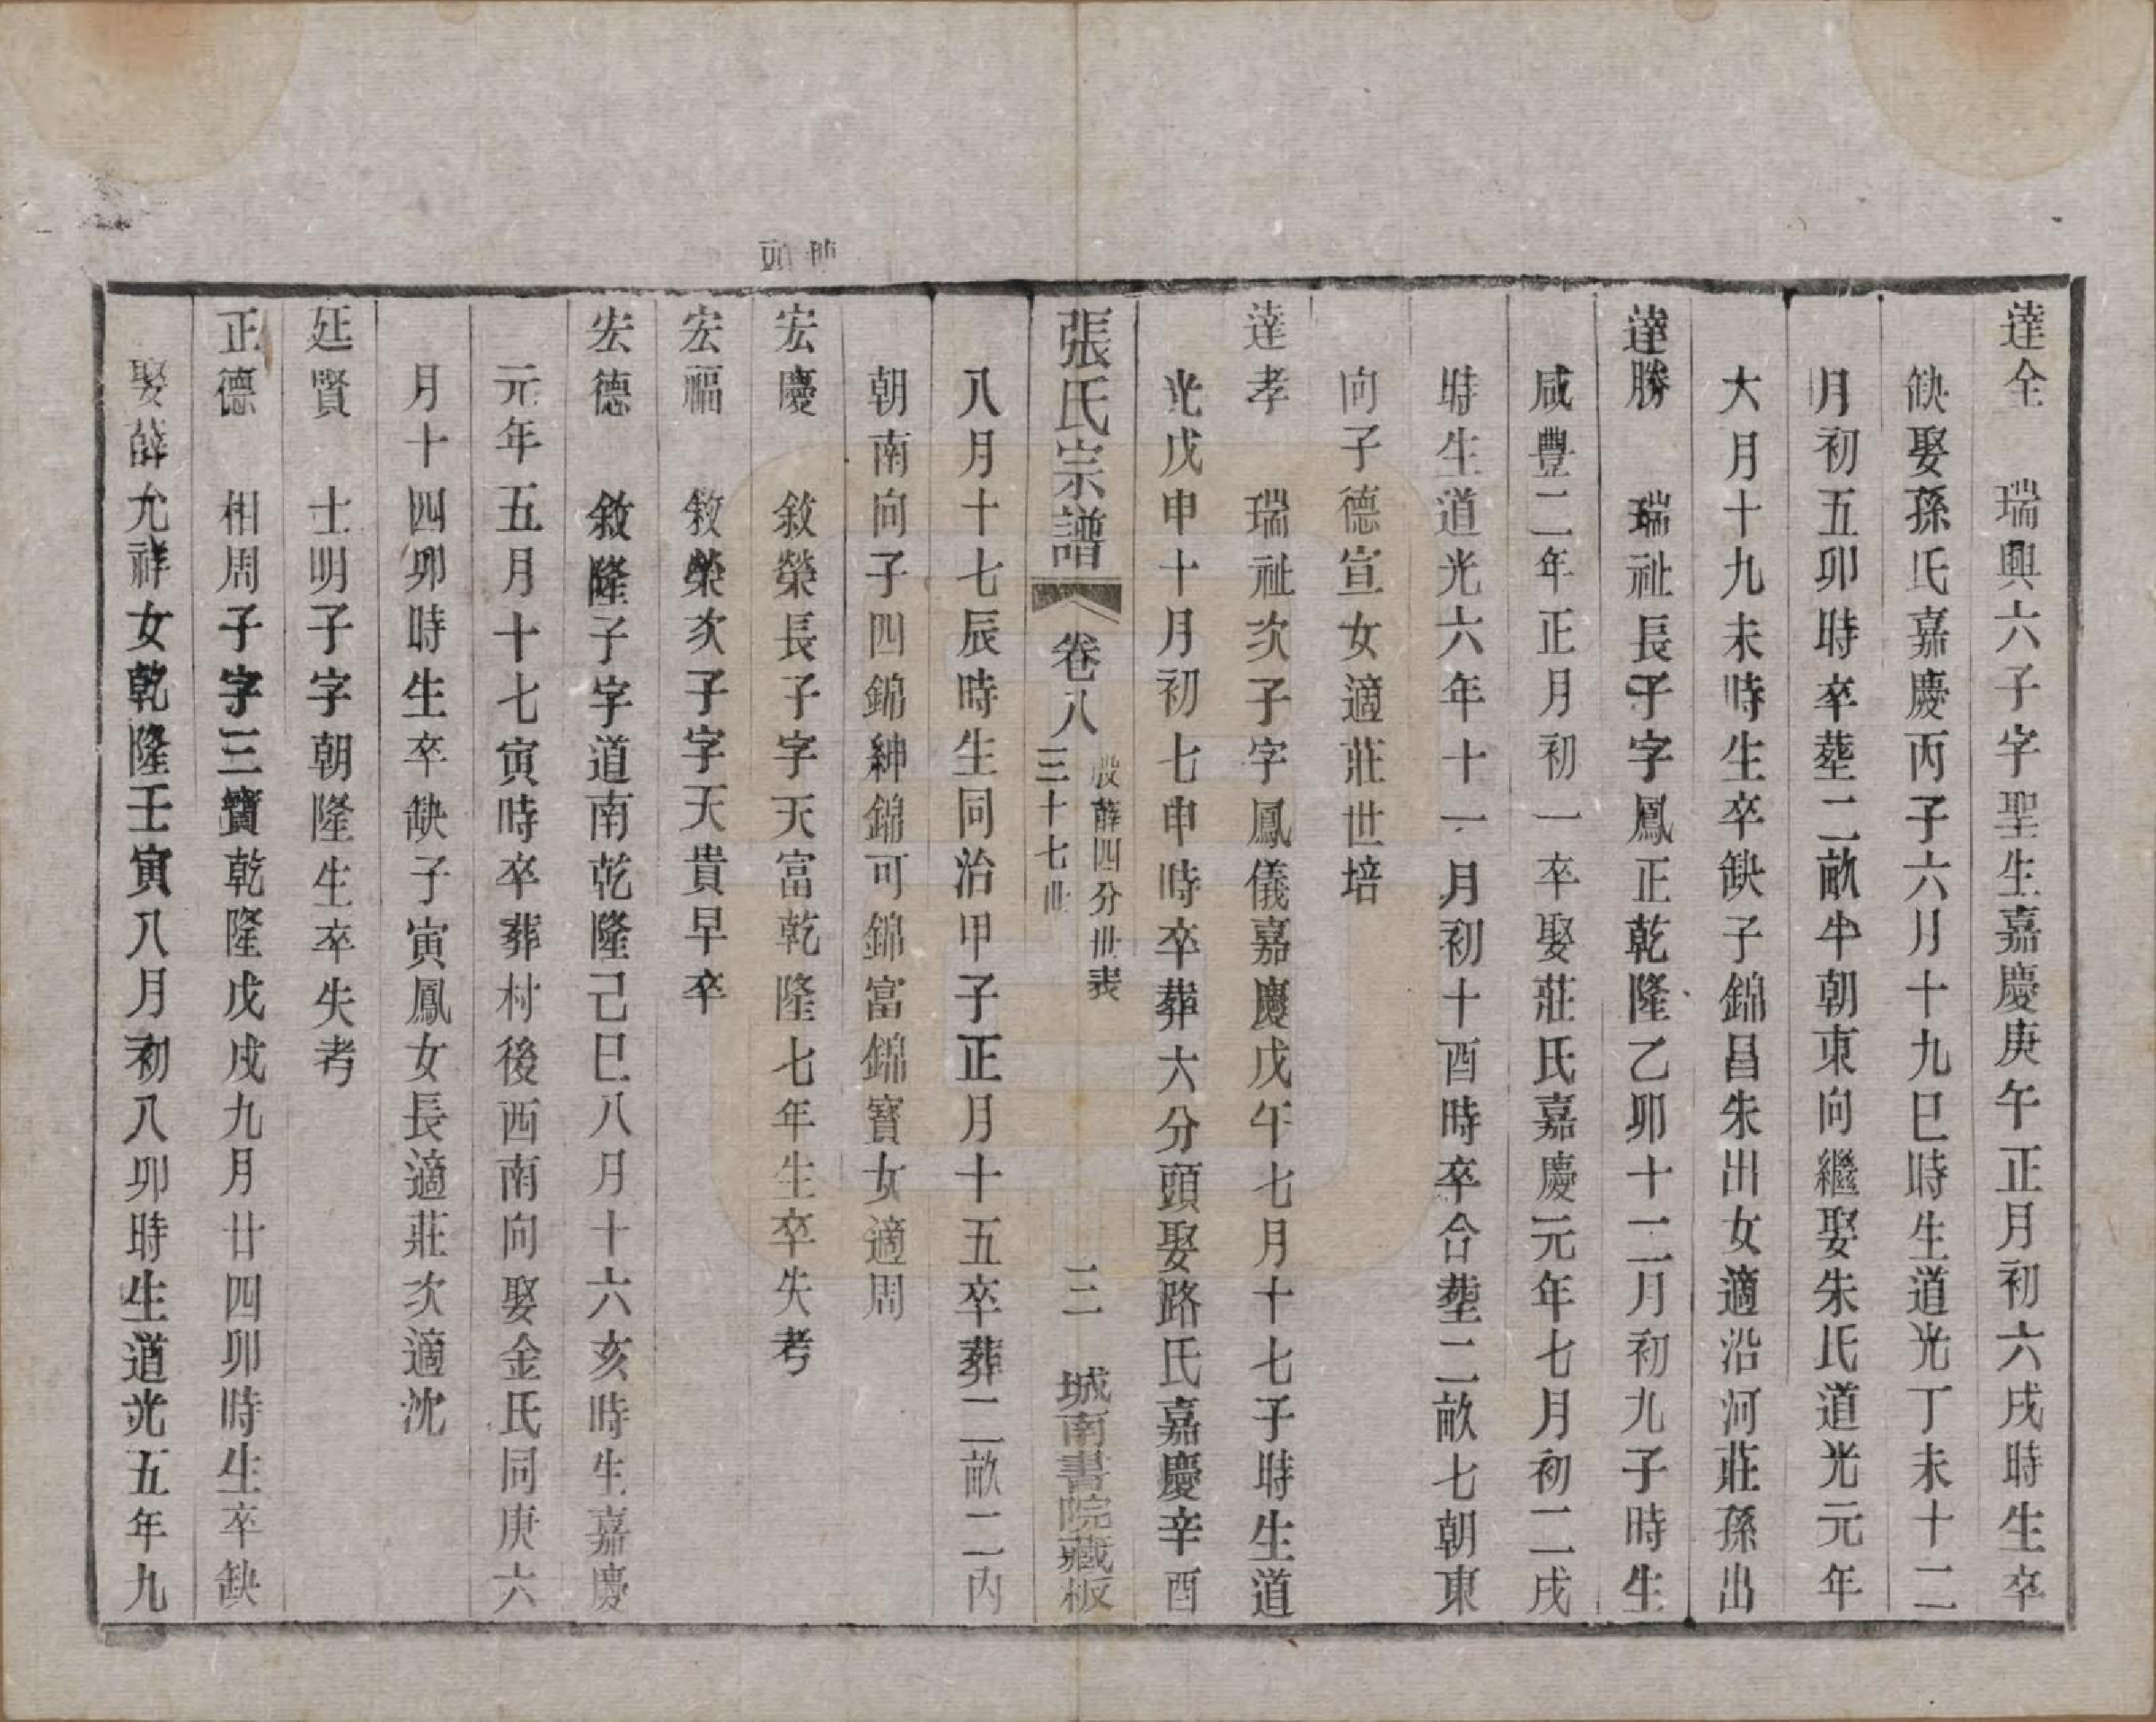 達全　瑞興六子字聖生嘉慶庚午正月初六戌時生卒
缺娶孫氏嘉慶丙子六月十九巳時生道光丁未十二
月初五卯時卒塟二畝半朝東向繼娶朱氏道光元年
大月十九未時生卒缺子錦昌朱出女適沿河莊孫出
達勝　瑞祉長子字鳳正乾隆乙卯十二月初九子時生
咸豐二年正月初一卒娶莊氏嘉慶元年七月初二戌
時生道光六年十一月初十酉時卒合塟二畝七朝東
向子德宣女適莊世培
達孝　瑞祉次子字鳳儀嘉慶戊午七月十七子時生道
光戊申十月初七申時卒葬六分頭娶路氏嘉慶辛酉
張氏宗譜　卷八　殷薛四分世表　三十七世　三　城南書院藏板
八月十七辰時生同治甲子正月十五卒葬二畝二內
朝南向子四錦紳錦可錦富錦寳女適周
宏慶　敘榮長子字天富乾隆七年生卒失考
宏福　敘榮次子字天貴早卒
宏德　敘隆子字道南乾隆己巳八月十六亥時生嘉慶
元年五月十七寅時卒葬村後西南向娶金氏同庚六
月十四卯時生卒缺子寅鳳女長適莊次適沈
廷賢　士明子字朝隆生卒失考
正德　相周子字三寶乾隆戊戌九月廿四卯時生卒缺
娶薛允祥女乾隆壬寅八月初八卯時生道光五年九